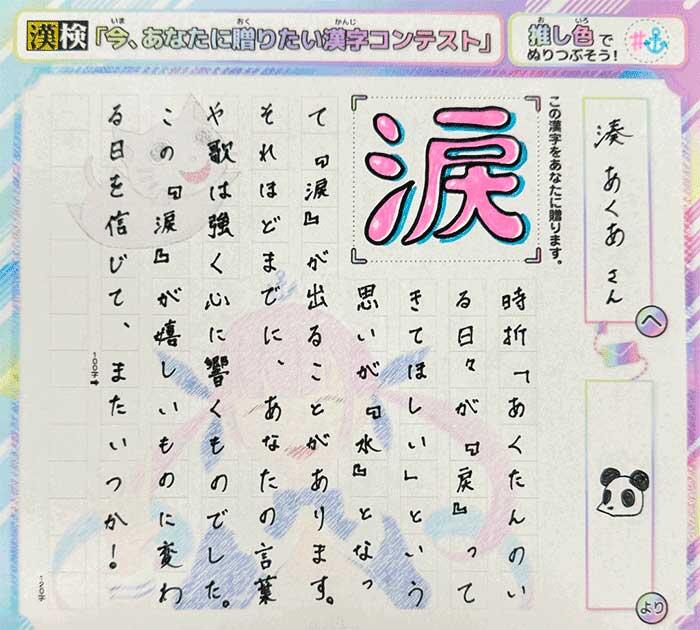 漢検「今、あなたに贈りたい漢字コンテスト」
いま おく かんじ
推し色で
お いろ
ぬりつぶそう!
#
湊 あくあ さん
へ
より
この漢字をあなたに贈ります。
涙
時折「あくたんのい
る日々が『戻』って
きてほしい」という
思いが『水』となっ
て『涙』が出ることがあります。
それほどまでに、あなたの言葉
や歌は強く心に響くものでした。
この『涙』が嬉しいものに変わ
る日を信じて、またいつか!
100字
120字